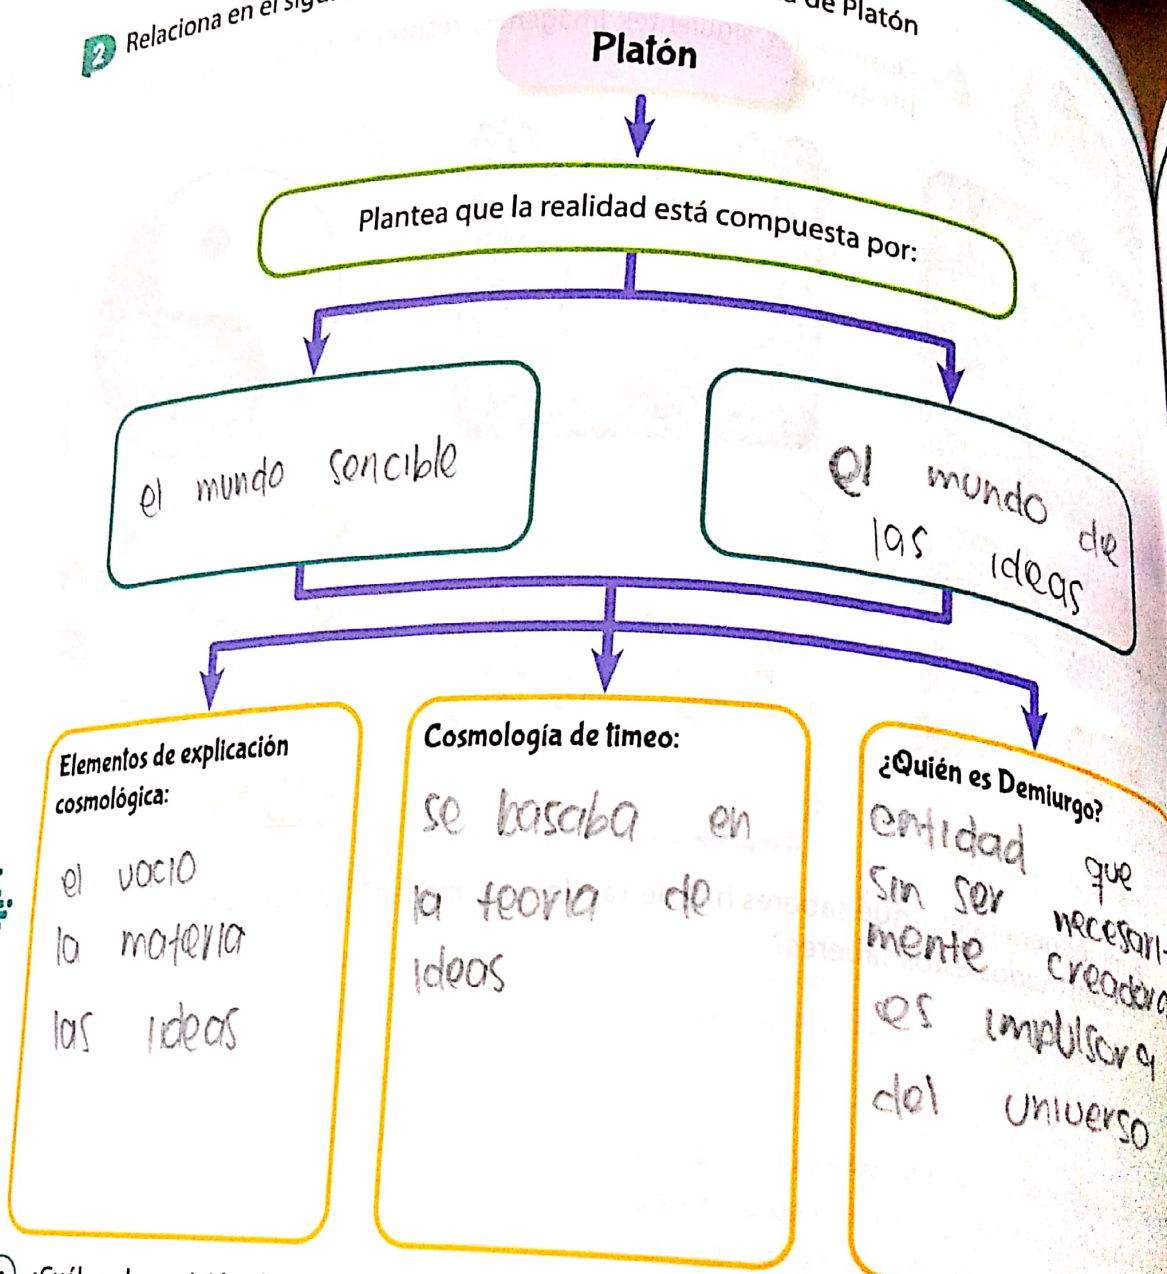 2 Relaciona en el
de Platón
Platón
Plantea que la realidad está compuesta por:
el mundo sencible
el mundo de
las ideas
Elementos de explicación
cosmológica:
el vacio
la materia
las ideas
Cosmología de timeo:
se basaba en
la teoria de
ideas
¿Quién es Demiurgo?
entidad que
sin ser necesari-
mente creadora
es impulsora
del universo